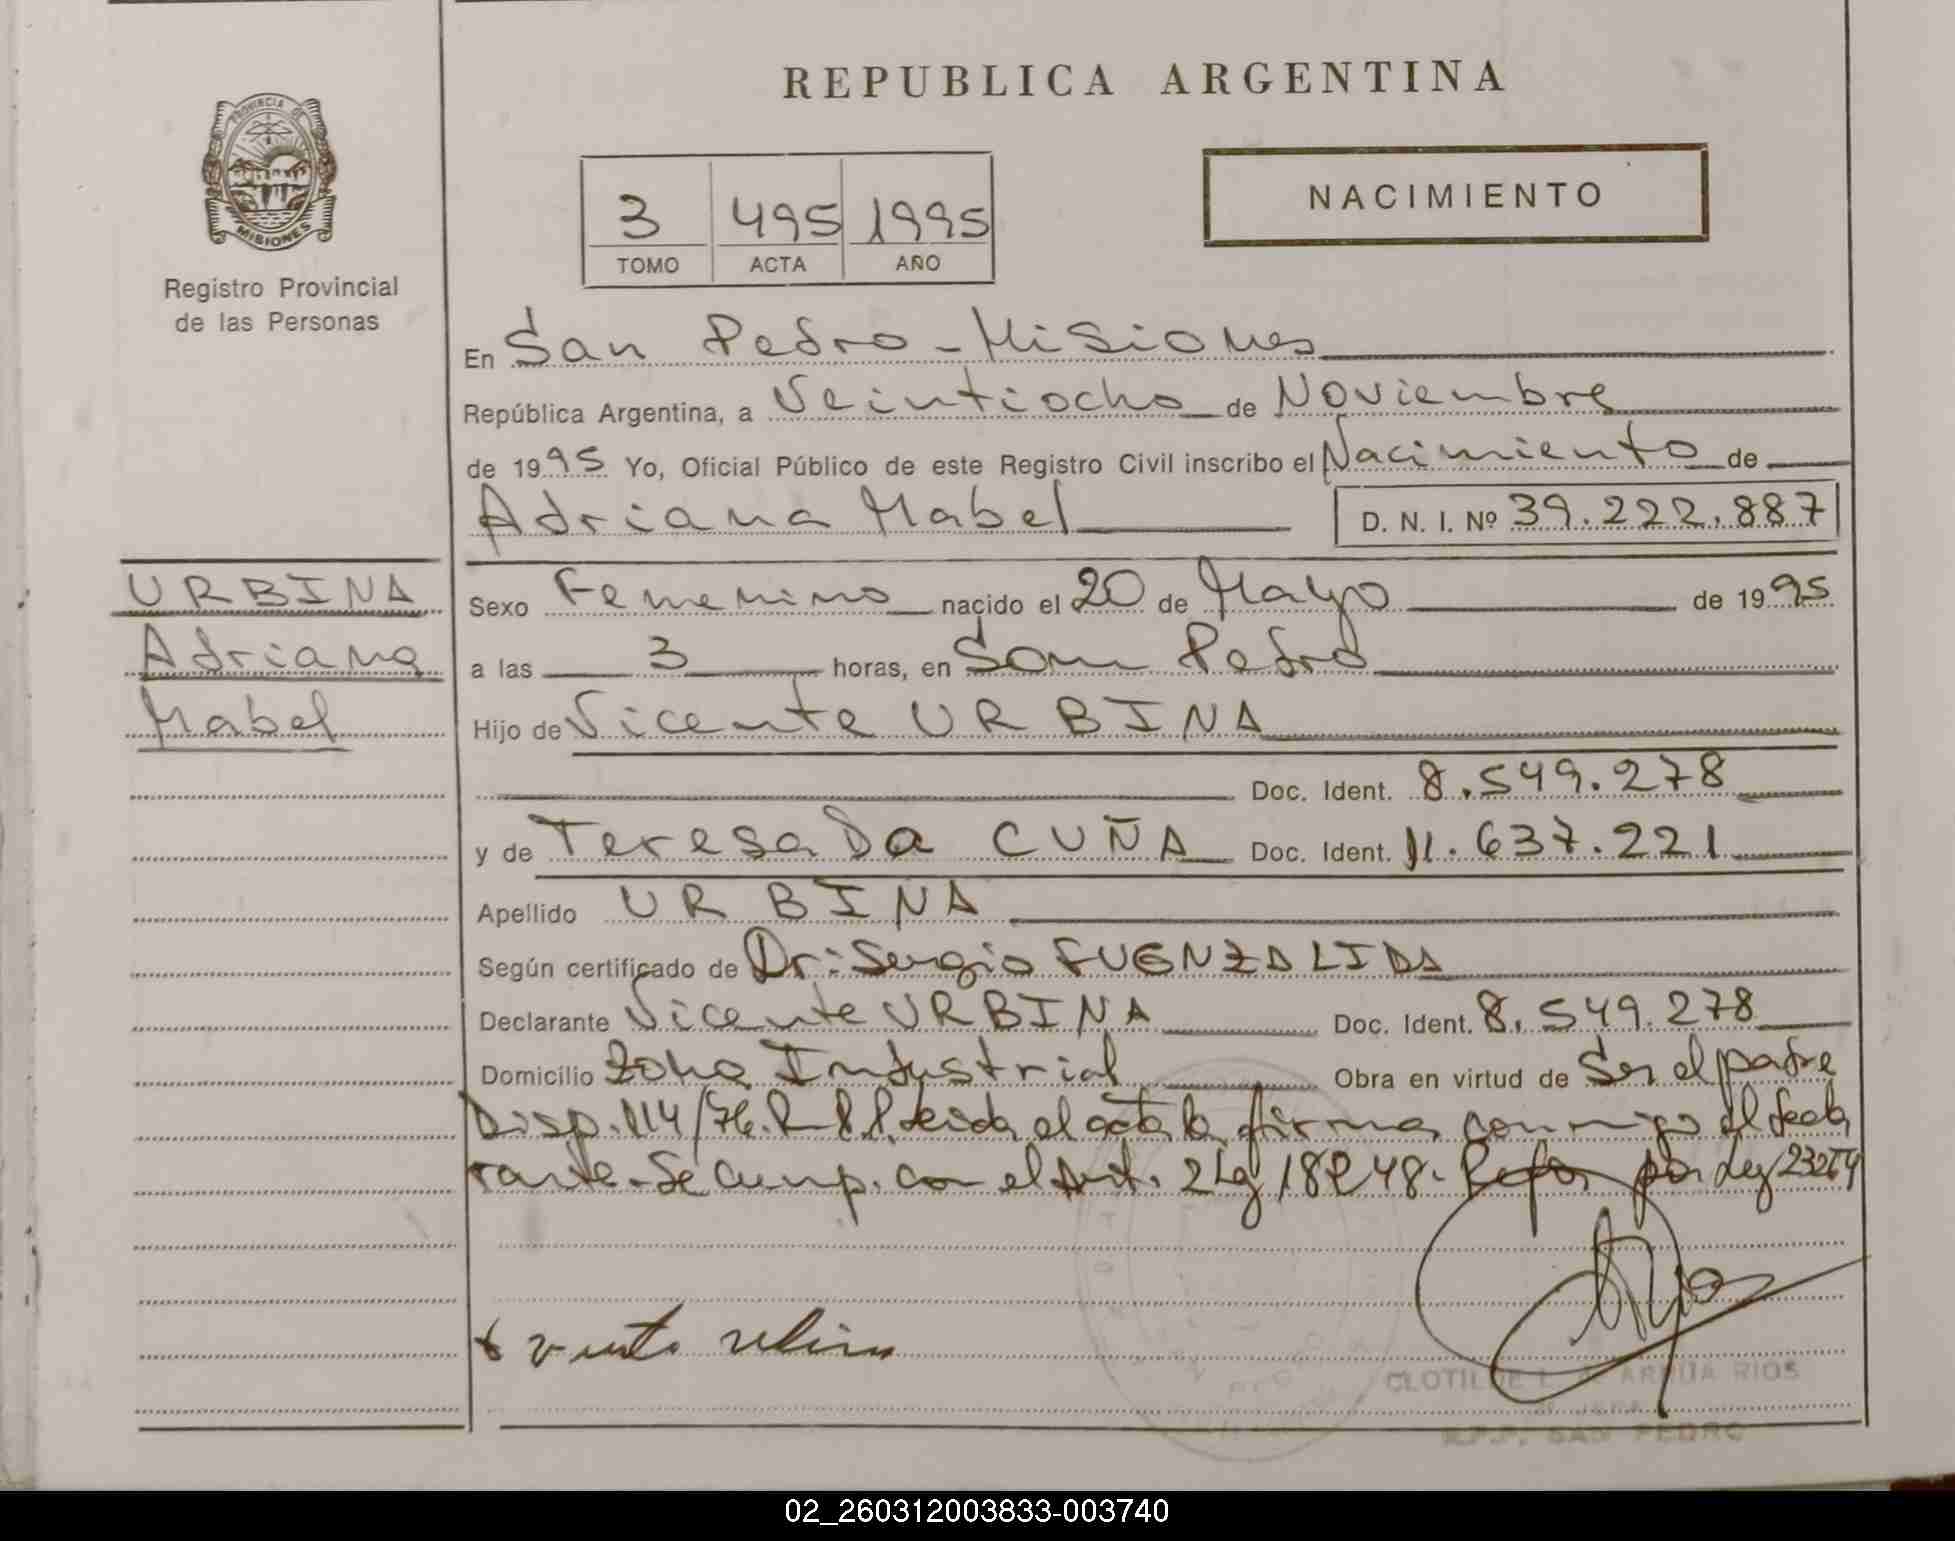 REPUBLICA ARGENTINA
PROVINCIA DE
MISIONES
Registro Provincial
de las Personas
3 495 1995
TOMO ACTA AÑO
NACIMIENTO
En San Pedro - Misiones
República Argentina, a Veintiocho de Noviembre
de 1995 Yo, Oficial Público de este Registro Civil inscribo el Nacimiento de
Adriana Mabel D. N. I. Nº 39.222.887
URBINA
Adriana
Mabel
Sexo Femenino nacido el 20 de Mayo de 1995
a las 3 horas, en San Pedro
Hijo de Vicente URBINA
Doc. Ident. 8.549.278
y de Teresa Da CUÑA Doc. Ident. 11.637.221
Apellido URBINA
Según certificado de Dr: Sergio FUENZALIDA
Declarante Vicente URBINA Doc. Ident. 8.549.278
Domicilio Zona Industrial Obra en virtud de Ser el padre
Disp. 114/76. R.P.P. leida el acta la firma conmigo el decla
rante. Se cump. con el Art. 2 Ley 18248. Refor por Ley 23264
CLOTILDE RIOS
R.P.P. SAN PEDRO
02_260312003833-003740